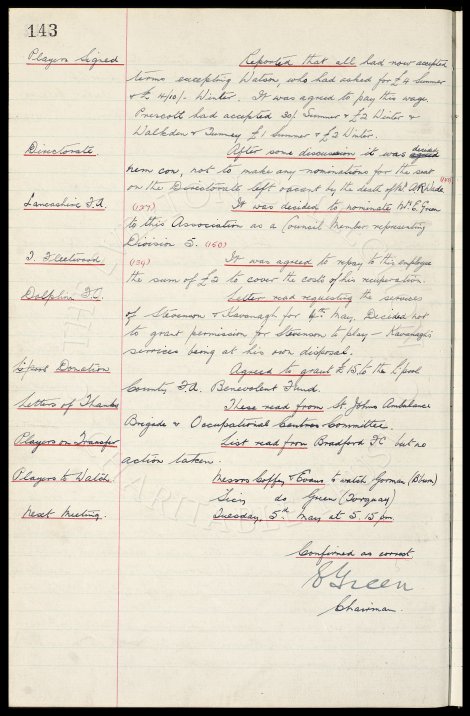 143
Players Signed Reported that all had now accepted
terms excepting Watson, who had asked for £4 Summer
& £4/10/- Winter. It was agreed to pay this wage.
Prescott had accepted 30/- Summer & £2 Winter &
Walkden & £1 Summer & £2 Winter.
Directorate. After some discussion it was decided agreed
nem con, not to make any nominations for the seat
on the Directorate left vacant by the death of Mr A.R. Wade.
Lancashire F.A. (127) It was decided to nominate Mr. E. Green
to this Association as a Council Member representing
Division 5. (150)
T. Fleetwood. (134) It was agreed to repay to this employee
the sum of £2 to cover the costs of his recuperation.
Dolphin F.C. Letter read requesting the services
of Stevenson & Kavanagh for 4th May. Decided not
to grant permission for Stevenson to play - Kavanagh's
services being at his own disposal.
L'pool Donation Agreed to grant £15 to the L'pool
County F.A. Benevolent Fund.
Letters of Thanks These read from St. Johns Ambulance
Brigade & Occupational Centres Committee.
Players on Transfer List read from Bradford F.C. but no
action taken.
Players to Watch. Messrs Coffey & Evans to watch Gorman (B'burn)
do Green (Torquay)
Next Meeting. Tuesday, 5th May at 5.15. pm.
Confirmed as correct
E Green
Chairman.